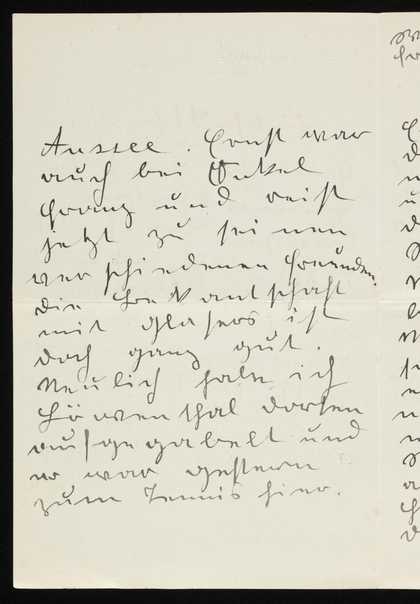 Aussee. Ernst war
auch bei Onkel
Franz und reist
jetzt zu seinen
verschiedenen Freunden.
die Bekantschaft
mit Glasers ist
doch ganz gut.
Neulich habe ich
Löwenthal dorten
aufgegabelt und
er war gestern
zum Tennis hier.